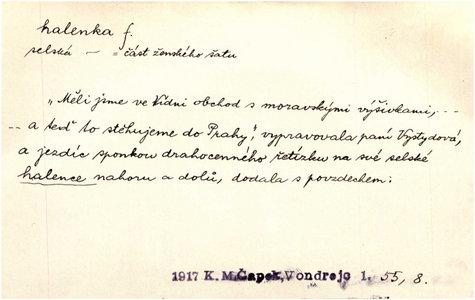 halenka f.
selská — = část ženského šatu
„Měli jsme ve Vídni obchod s moravskými výšivkami, --
-- a teď to stěhujeme do Prahy", vypravovala paní Vystydová,
a jezdíc sponkou drahocenného řetízku na své selské
halence nahoru a dolů, dodala s povzdechem:
1917 K. M. Čapek, Vondrejc 1, 55, 8.